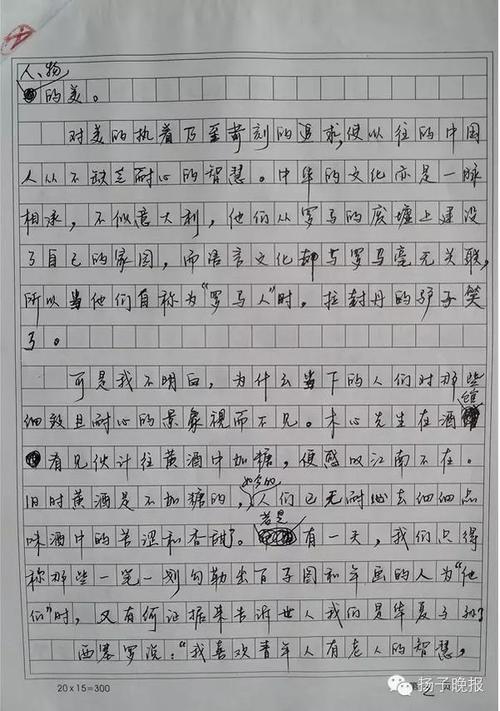 人、物
的美。
对美的执着乃至苛刻的追求,使以往的中国
人从不缺乏耐心的智慧。中华的文化亦是一脉
相承,不似意大利,他们从罗马的废墟上建设
了自己的家园,而语言文化却与罗马毫无关联,
所以当他们自称为“罗马人”时,拉封丹的驴子笑
了。
可是我不明白,为什么当下的人们对那些
细致且耐心的景象视而不见。木心先生在酒馆
看见伙计往黄酒中加糖,便感叹江南不在。
旧时黄酒是不加糖的,如今的人们已无耐心去细细品
味酒中的苦涩和香甜了。若是有一天,我们只得
称那些一笔一划勾勒出百子图和年画的人为“他
们”时,又有何证据来告诉世人我们是华夏子孙?
西塞罗说:“我喜欢青年人有老人的智慧,
20×15=300
扬子晚报